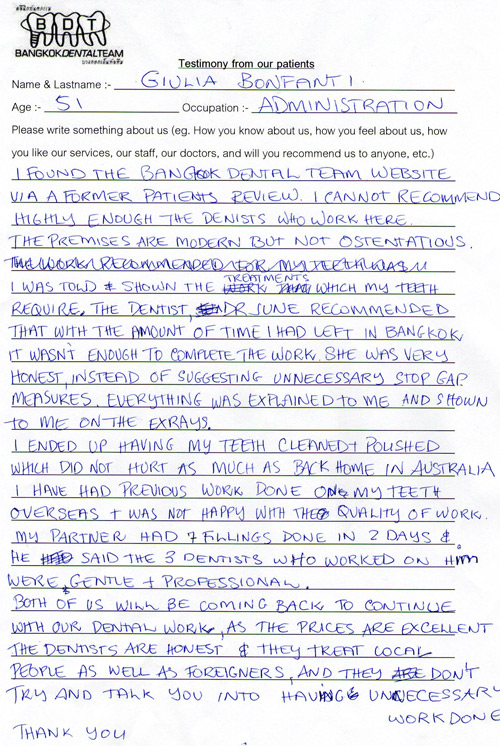 BANGKOKDENTALTEAM
Testimony from our patients
Name & Lastname :- GIULIA BONFANTI.
Age :- 51 Occupation :- ADMINISTRATION
Please write something about us (eg. How you know about us, how you feel about us, how
you like our services, our staff, our doctors, and will you recommend us to anyone, etc.)
I FOUND THE BANGKOK DENTAL TEAM WEBSITE
VIA A FORMER PATIENTS REVIEW. I CANNOT RECOMMEND
HIGHLY ENOUGH THE DENISTS WHO WORK HERE.
THE PREMISES ARE MODERN BUT NOT OSTENTATIONS.
THE WORK RECOMMENDED FOR MY TEETH WAS
TREATMENTS
I WAS TOLD & SHOWN THE WORK THAT WHICH MY TEETH
REQUIRE. THE DENTIST, DR JUNE RECOMMENDED
THAT WITH THE AMOUNT OF TIME I HAD LEFT IN BANGKOK
IT WASN'T ENOUGH TO COMPLETE THE WORK. SHE WAS VERY
HONEST, INSTEAD OF SUGGESTING UNNECESSARY STOP GAP
MEASURES. EVERYTHING WAS EXPLAINED TO ME AND SHOWN
TO ME ON THE EXRAYS.
I ENDED UP HAVING MY TEETH CLEANED + POLISHED
WHICH DID NOT HURT AS MUCH AS BACK HOME IN AUSTRALIA
I HAVE HAD PREVIOUS WORK DONE ON MY TEETH
OVERSEAS + WAS NOT HAPPY WITH THE QUALITY OF WORK.
MY PARTNER HAD 7 FILLINGS DONE IN 2 DAYS &
HE SAID THE 3 DENTISTS WHO WORKED ON HIM
WERE GENTLE + PROFESSIONAL.
BOTH OF US WILL BE COMING BACK TO CONTINUE
WITH OUR DENTAL WORK, AS THE PRICES ARE EXCELLENT
THE DENTISTS ARE HONEST & THEY TREAT LOCAL
PEOPLE AS WELL AS FOREIGNERS, AND THEY ARE DON'T
TRY AND TALK YOU INTO HAVING UNNECESSARY
WORK DONE
THANK YOU